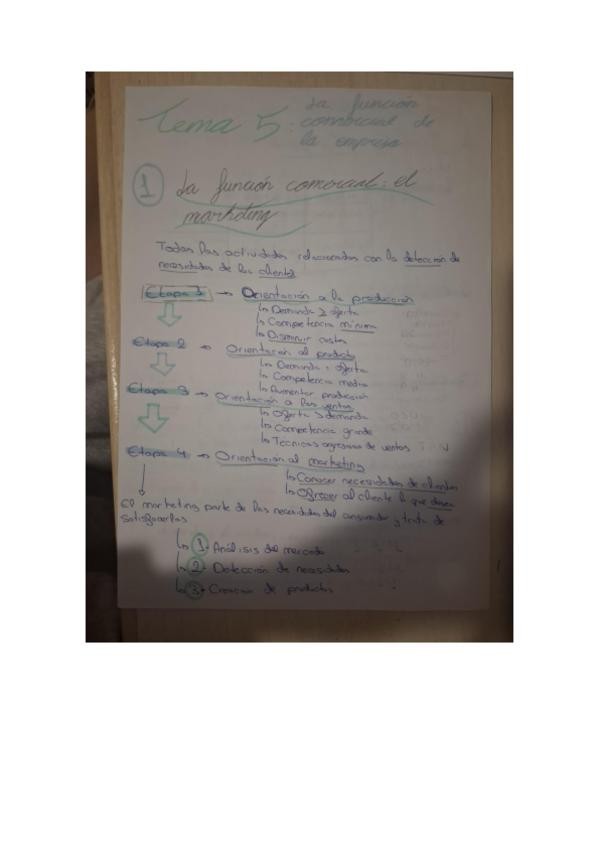 Tema 5: La función
comercial de
la empresa
1 La función comercial: el
marketing
Todas las actividades relacionadas con la detección de
necesidades de los clientes
Etapa 1 → Orientación a la producción
↳ Demanda > oferta
↳ Competencia mínima
↳ Disminuir costes
Etapa 2 → Orientación al producto
↳ Demanda = oferta
↳ Competencia media
↳ Aumentar producción
Etapa 3 → Orientación a las ventas
↳ Oferta > demanda
↳ Competencia grande
↳ Técnicas agresivas de ventas
Etapa 4 → Orientación al marketing
↳ Conocer necesidades de clientes
↳ Ofrecer al cliente lo que desea
El marketing parte de las necesidades del consumidor y trata de
satisfacerlas
↳ 1 Análisis del mercado
↳ 2 Detección de necesidades
↳ 3 Creación de productos